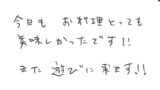 今日も お料理とっても
美味しかったです!!
また 遊びに来ます!!